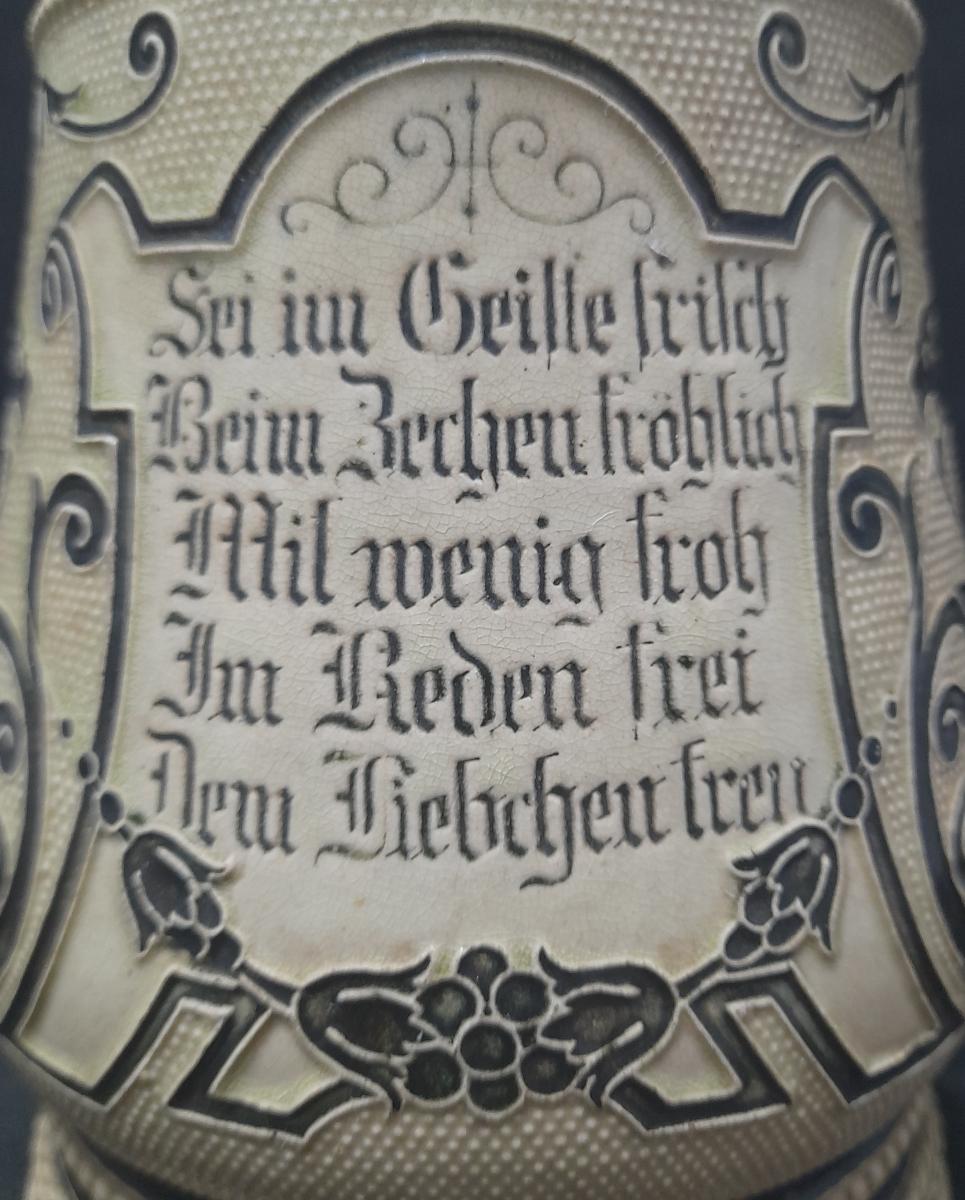 Sei im Geiste frisch
Beim Zechen fröhlich
Mit wenig froh
Im Reden frei
Dem Liebchen treu